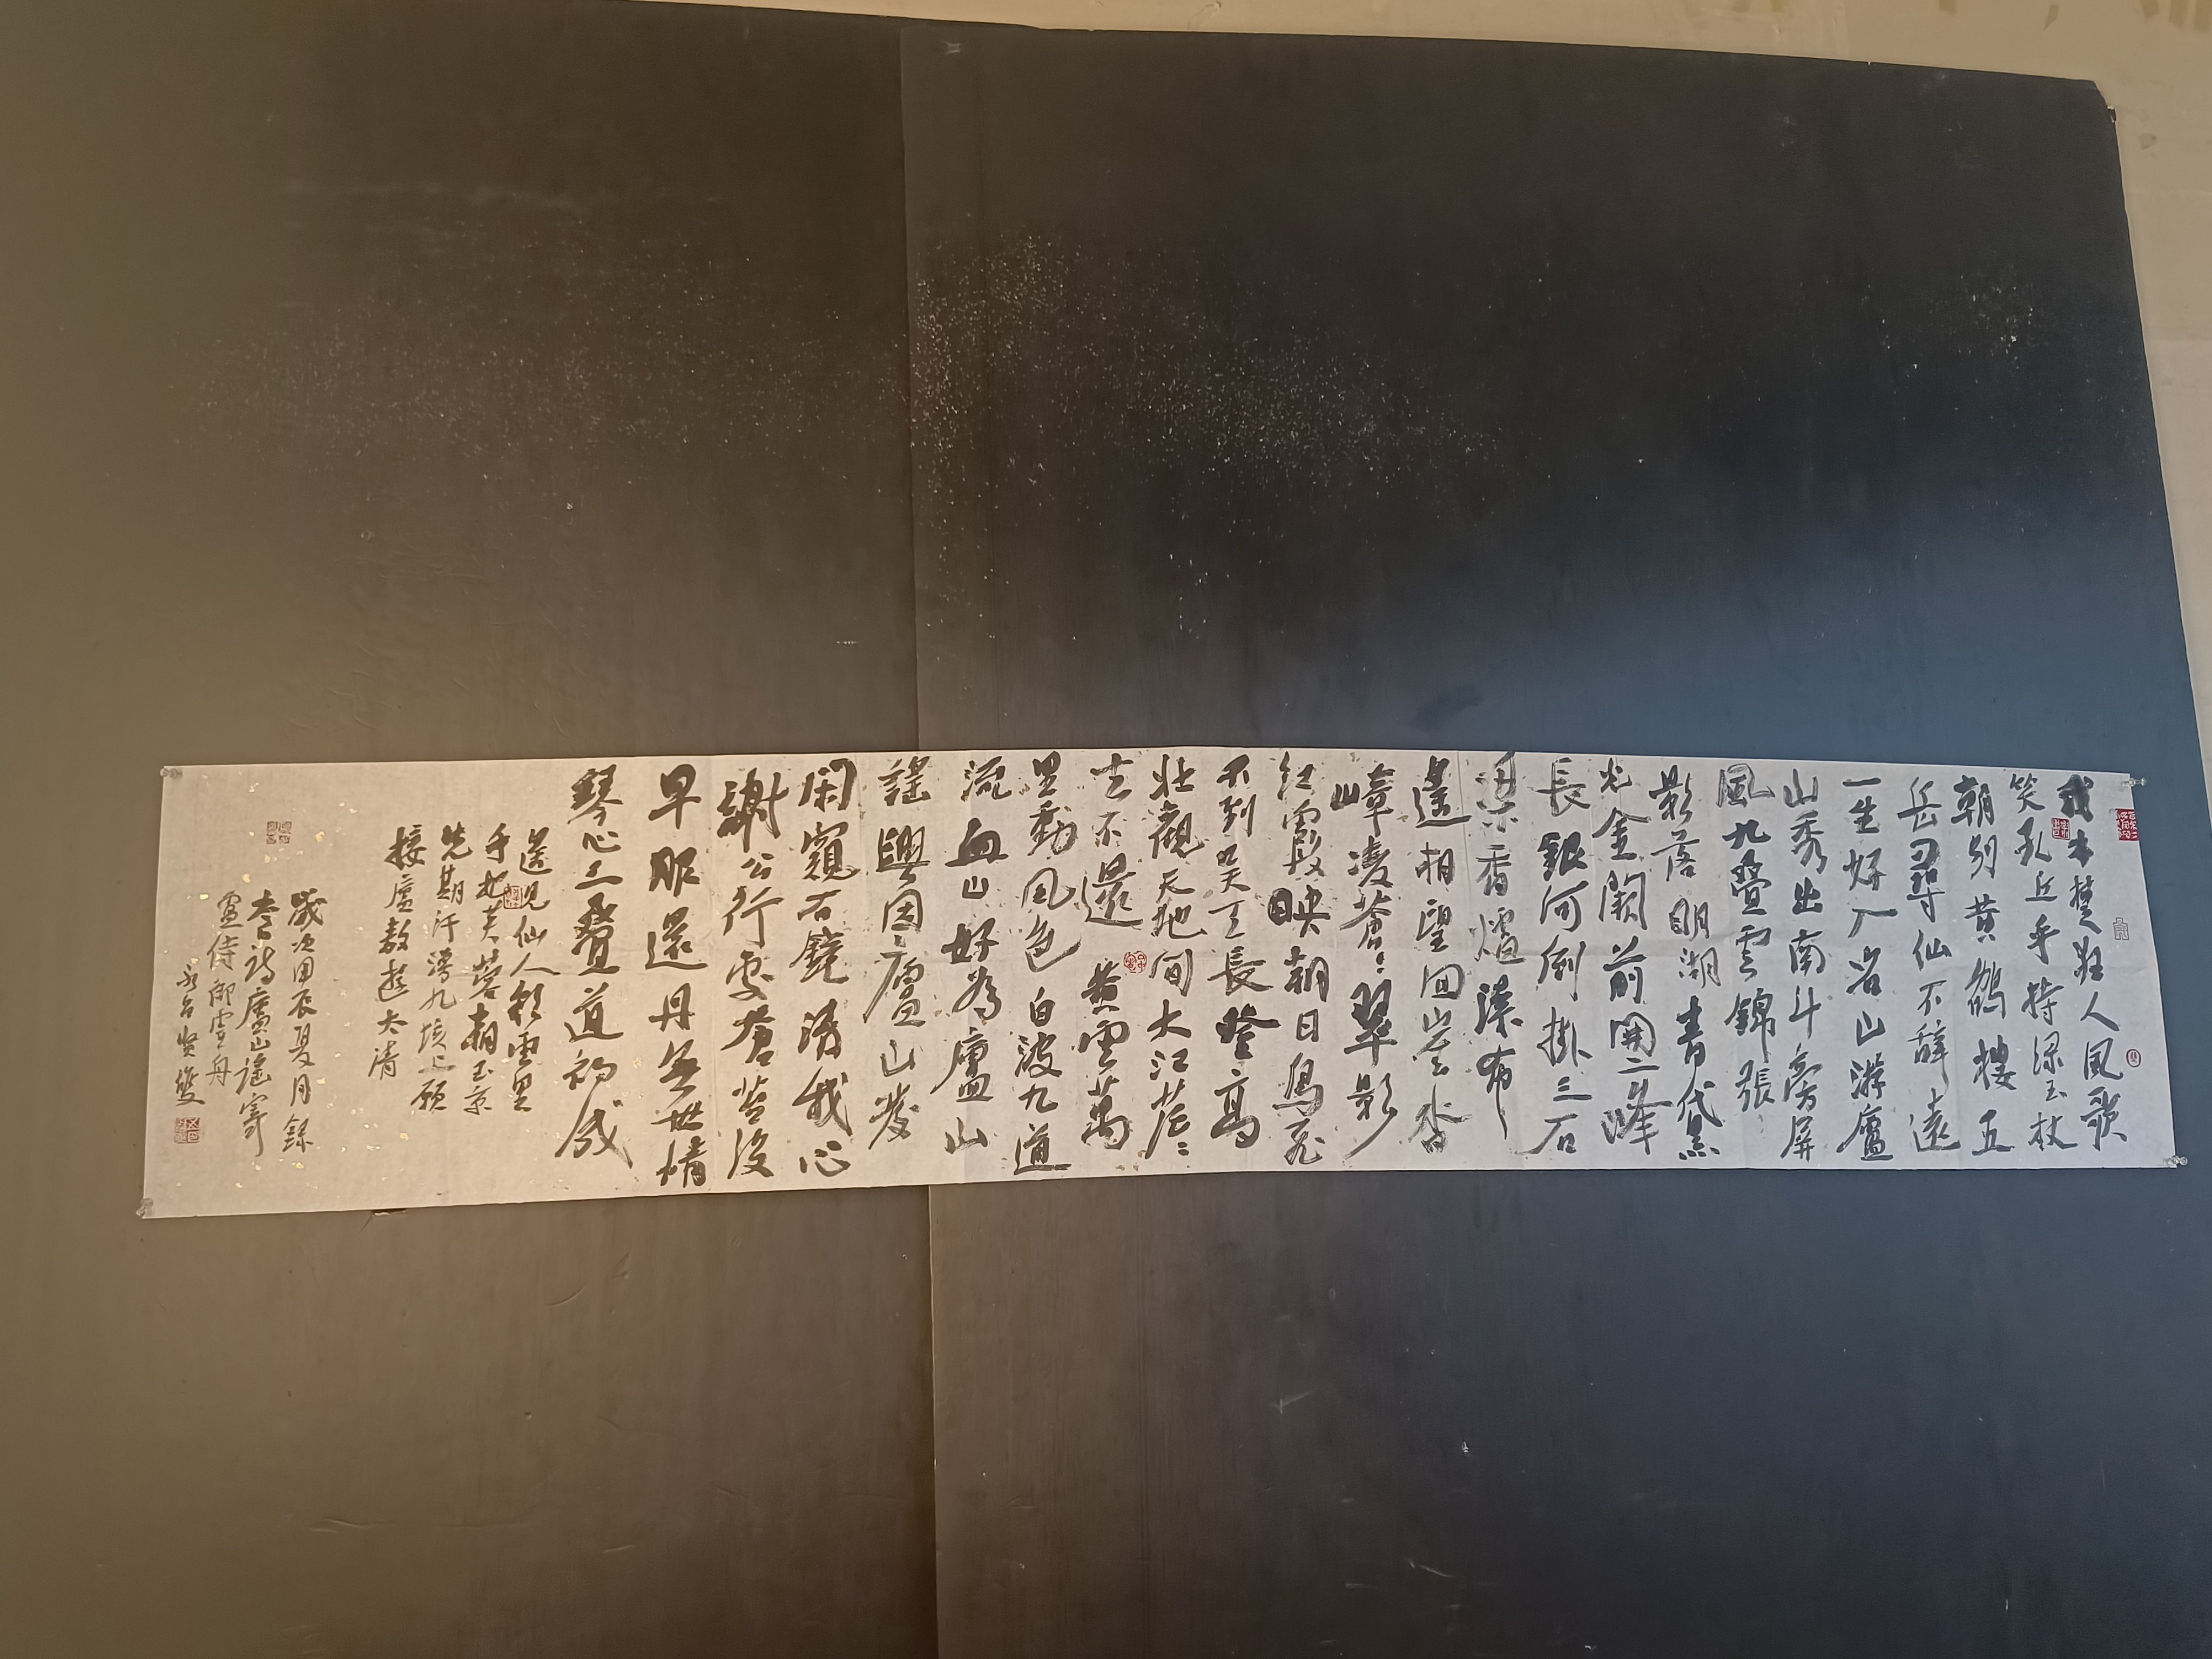 我本楚狂人風歌
笑孔丘手持綠玉杖
朝別黃鶴樓五
岳尋仙不辭遠
一生好入名山游廬
山秀出南斗旁屏
風九疊雲錦張
影落明湖青黛
光金闕前開二峰
長銀河倒掛三石
梁香爐瀑布
遙相望回崖沓
嶂凌蒼蒼翠影
紅霞映朝日鳥飛
不到吳天長登高
壯觀天地間大江茫茫
去不還黃雲萬
里動風色白波九道
流山好為廬山
謠興因廬山發
閑窺石鏡清我心
謝公行處蒼苔沒
早服還丹無世情
琴心三疊道初成
遙見仙人彩雲里
手把芙蓉朝玉京
先期汗漫九垓上願
接廬敖遊太清
歲次甲辰夏月錄
李白詩廬山謠寄
盧侍御虛舟